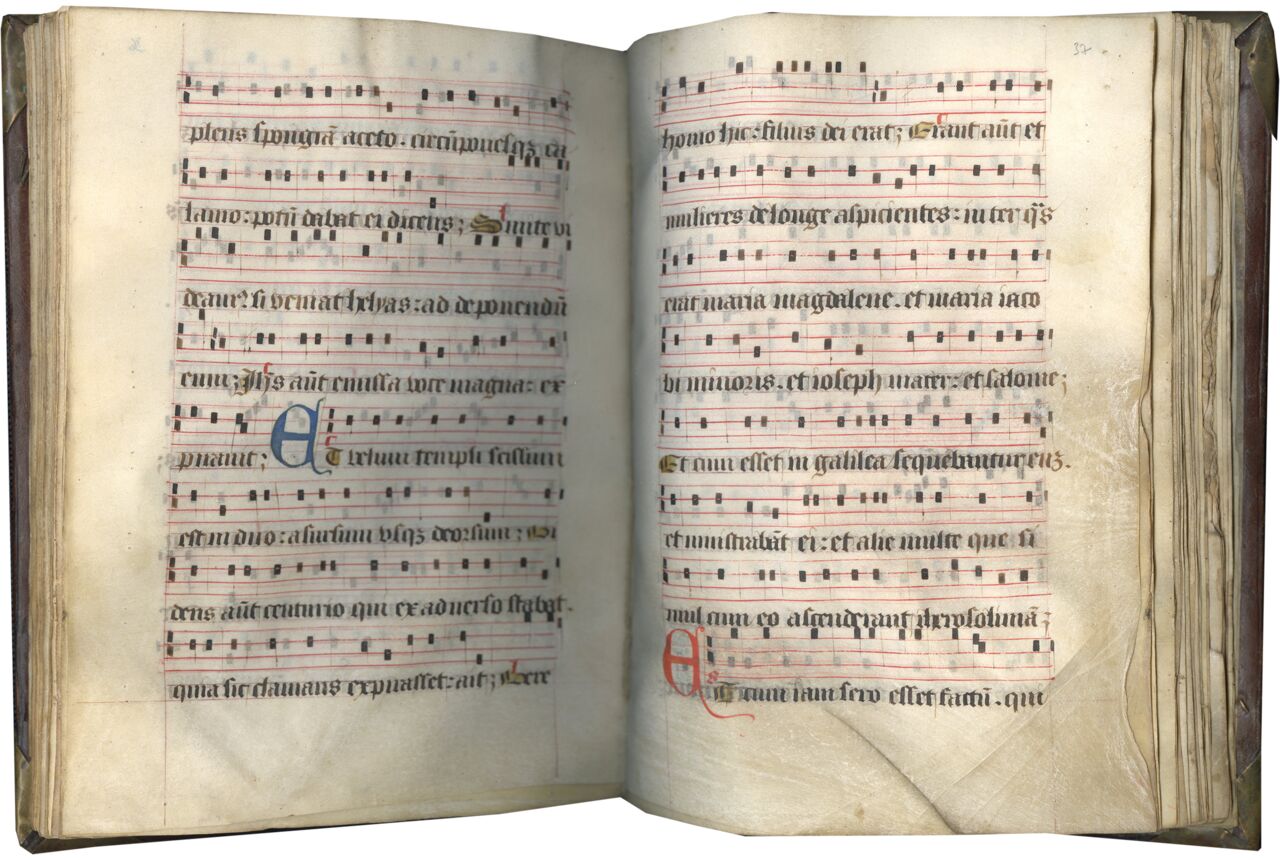 plens spongiā aceto . circūponēsqʒ ca
lamo : potū dabat ei dicens ; t Sinite vi
deam᷒ si veniat helyas : ad deponendū
eum ; c Ihs aūt emissa voce magna : ex
pirauit ;
c ET velum templi scissum
est in duo : a sursum vsqʒ deorsum : Vi
dens aūt centurio qui ex aduerso stabat .
quia sic clamans expirasset : ait ; t Vere
37
homo hic : filius dei erat ; c Erant aūt et
mulieres de longe aspicientes : inter q̄s
erat maria magdalene . et maria iaco
bi minoris . et ioseph mater : et salome ;
Et cum esset in galilea sequebantur euʒ .
et ministrabāt ei : et alie multe que si
mul cum eo ascenderant iherosolimā ;
ET cum iam sero esset factū . qui